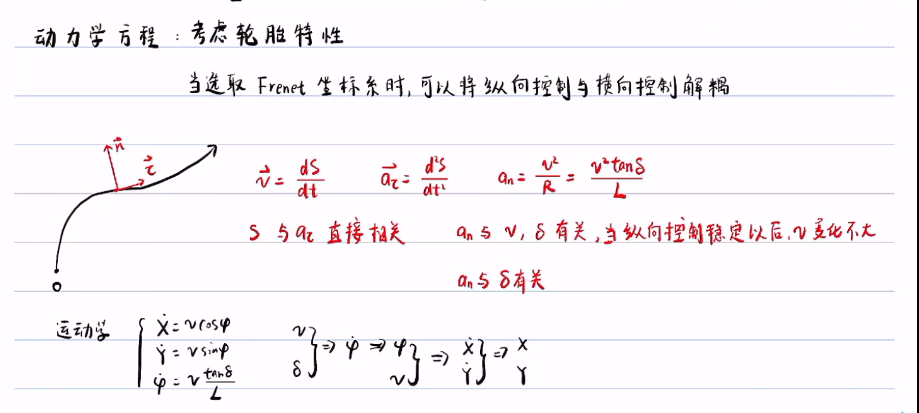 动力学方程：考虑轮胎特性
当选取 Frenet 坐标系时，可以将纵向控制与横向控制解耦
n⃗ τ⃗
v⃗ = dS/dt  a⃗τ = d²S/dt²  an = v²/R = v²tanδ/L
S 与 aτ 直接相关  an 与 v, δ 有关，当纵向控制稳定以后，v 变化不大
an 与 δ 有关
运动学 { Ẋ = vcosφ
Ẏ = vsinφ
φ̇ = v tanδ/L
v δ } ⇒ φ̇ ⇒ φ v } ⇒ Ẋ Ẏ } ⇒ X Y